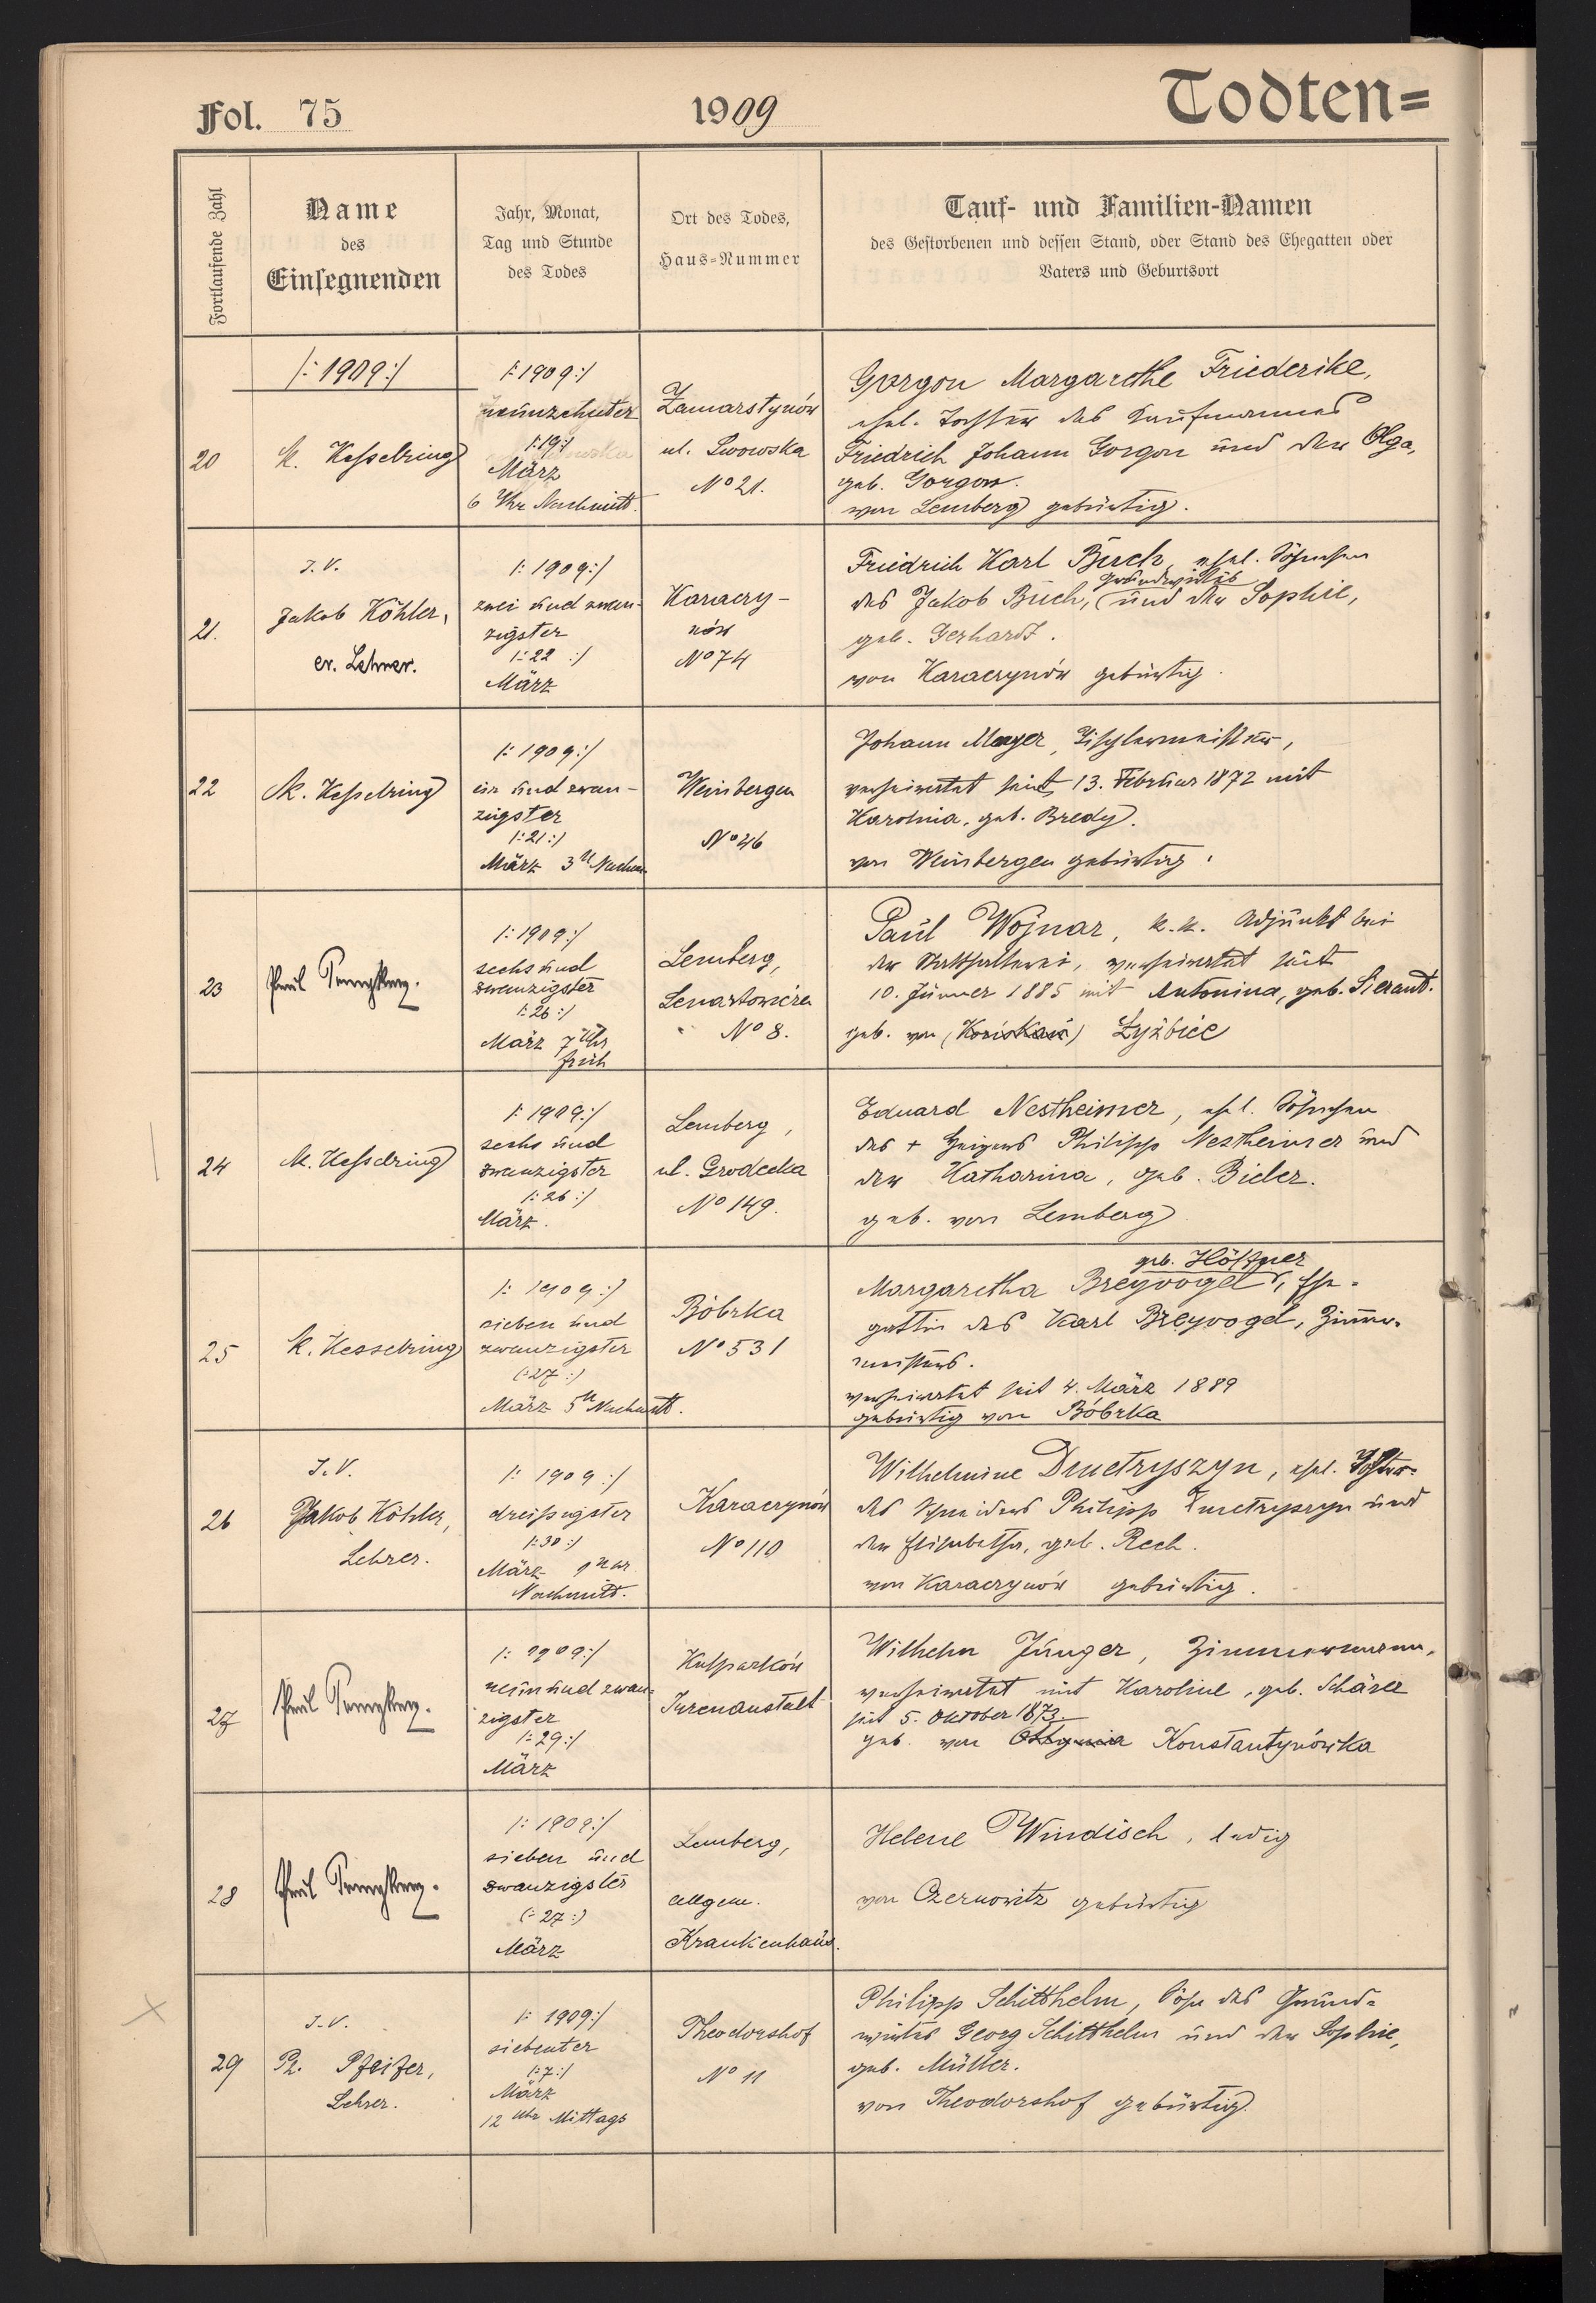 Fol. 75
1909
Todten=
Fortlaufende Zahl
Name
des
Einsegnenden
Jahr, Monat,
Tag und Stunde
des Todes
Ort des Todes,
Haus-Nummer
Tauf- und Familien-Namen
des Gestorbenen und dessen Stand, oder Stand des Ehegatten oder
Vaters und Geburtsort
/:1909:/
20
K. Kesselring
/:1909:/
neunzehnter
/:19:/
März
6 Uhr Nachmitt.
Zamarstynów
ul. Lwowska
No 21.
Gorgon Margarethe Friederike,
ehel. Tochter des Kaufmannes
Friedrich Johann Gorgon und der Olga,
geb. Gorgon.
von Lemberg gebürtig.
21.
I.V.
Jakob Köhler,
ev. Lehrer.
/:1909:/
zwei und zwan-
zigster
/:22:/
März
Karaczy-
nów
No 74
Friedrich Karl Buch, ehel. Söhnchen
Grundwirths
des Jakob Buch, und der Sophie,
geb. Gerhardt.
von Karaczynów gebürtig.
22
K. Kesselring
/:1909:/
ein und zwan-
zigster
/:21:/
März 3 U Nachm.
Weinbergen
No 46
Johann Mayer, Tischlermeister,
verheiratet seit 13. Februar 1872 mit
Karolina, geb. Bredy.
von Weinbergen gebürtig.
23
/:1909:/
sechs und
zwanzigster
/:26:/
März 7 Uhr
früh
Lemberg,
Lenartowicza
No 8.
Paul Wojnar, k.k. Adjunkt bei
der Statthalterei, verheiratet seit
10. Jänner 1885 mit Antonina, geb. Sierant.
geb. von (Koniskau) Łyżbice
24
K. Kesselring
/:1909:/
sechs und
zwanzigster
/:26:/
März.
Lemberg,
ul. Grodecka
No 149.
Eduard Nestheimer, ehel. Söhnchen
des + Philipp Nestheimer und
der Katharina, geb. Bieler.
geb. von Lemberg
25
K. Kesselring
/:1909:/
sieben und
zwanzigster
(:27:)
März 5 U Nachmitt.
Bóbrka
No 531
geb. Höhner
Margaretha Breyvogel, Ehe-
gattin des Karl Breyvogel, Zimmer-
meisters.
verheiratet seit 4. März 1889
gebürtig von Bóbrka
26
I.V.
Jakob Köhler,
Lehrer.
/:1909:/
dreißigster
/:30:/
März 9 Uhr
Nachmitt.
Karaczynów
No 110
Wilhelmine Dmetryszyn, ehel. Tochter
des Schneiders Philipp Dmetryszyn und
der Elisabetha, geb. Rech.
von Karaczynów gebürtig.
27
/:1909:/
neun und zwan-
zigster
/:29:/
März
Kulparków
Irrenanstalt
Wilhelm Jünger, Zimmermann,
verheiratet mit Karoline, geb. Schärer
seit 5. Oktober 1873.
geb. von Ottynia Konstantynówka
28
/:1909:/
sieben und
zwanzigster
(:27:)
März
Lemberg,
allgem.
Krankenhaus.
Helene Windisch, ledig
von Czernowitz gebürtig
29
I.V.
Ph. Pfeifer,
Lehrer.
/:1909:/
siebenter
/:7:/
März
12 Uhr Mittags
Theodorshof
No 11
Philipp Schitthelm, Sohn des Grund-
wirtes Georg Schitthelm und der Sophie,
geb. Müller.
von Theodorshof gebürtig.